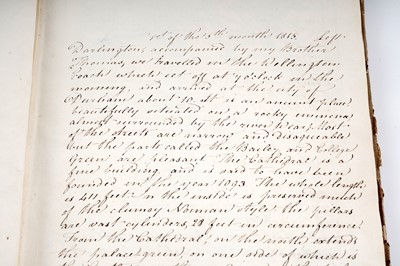 1st of the 5th month 1818. Left
Darlington, accompanied by my Brother
Thomas, we travelled in the Wellington
Coach which set off at 7 oclock in the
morning and arrived at the city of
Durham about 10. It is an ancient place
beautifully situated on a rocky eminence
almost surrounded by the river Wear, Most
of the streets are narrow and disagreeable
but the parts called the Bailey and College
Green are pleasant. The Cathedral is a
fine building and is said to have been
founded in the year 1093. The whole length
is 411 feet. In the inside is preserved much
of the clumsy Norman style the pillars
are vast cylinders 23 feet in circumference
From the Cathedral, on the north extends
the palace green, on one side of which is